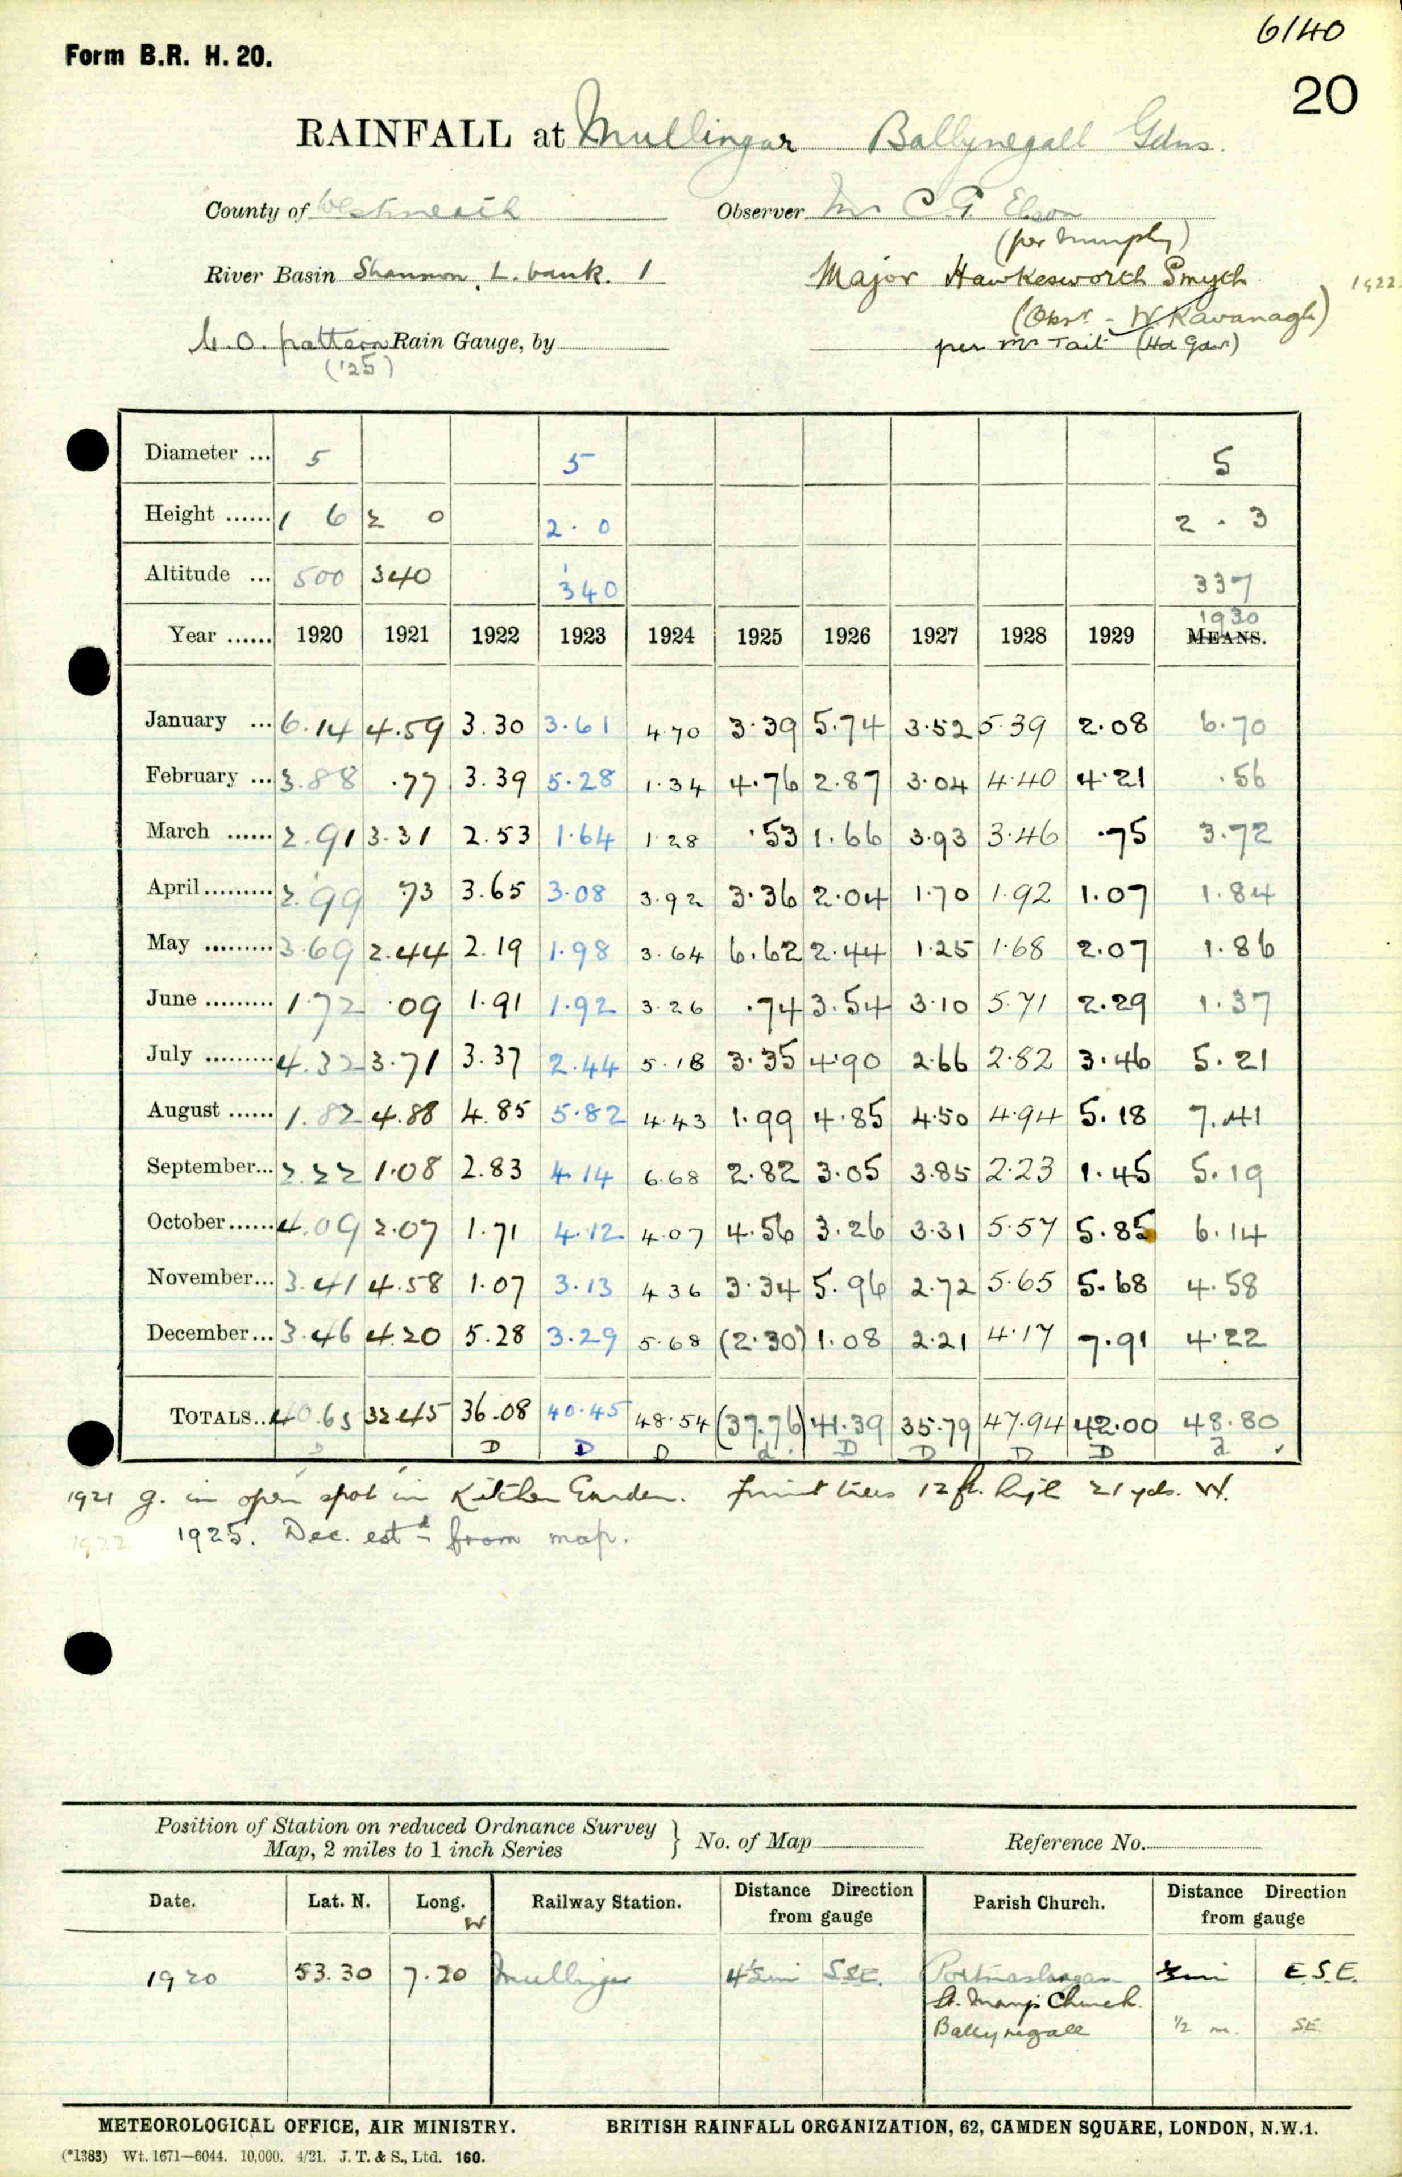 6140
Form B.R. H. 20.
20
RAINFALL at Mullingar Ballynegall Gdns.
County of Westmeath Observer Mr C. G. Elson
(per Murphy)
River Basin Shannon, L. bank. 1 Major Hawkesworth Smyth 1922
(Obsr - W. Kavanagh)
M.O. pattern Rain Gauge, by per Mr Tait (Hd Gdnr)
('25)
Diameter ... 5 5 5
Height ...... 1 6 2 0 2 . 0 2 . 3
Altitude ... 500 340 340 337
1930
Year ...... 1920 1921 1922 1923 1924 1925 1926 1927 1928 1929 MEANS.
January ... 6.14 4.59 3.30 3.61 4.70 3.39 5.74 3.52 5.39 2.08 6.70
February ... 3.88 .77 3.39 5.28 1.34 4.76 2.87 3.04 4.40 4.21 .56
March ...... 2.91 3.31 2.53 1.64 1.28 .53 1.66 3.93 3.46 .75 3.72
April ......... 2.99 .73 3.65 3.08 3.92 3.36 2.04 1.70 1.92 1.07 1.84
May ......... 3.69 2.44 2.19 1.98 3.64 6.62 2.44 1.25 1.68 2.07 1.86
June ......... 1.72 .09 1.91 1.92 3.26 .74 3.54 3.10 5.71 2.29 1.37
July ......... 4.32 3.71 3.37 2.44 5.18 3.35 4.90 2.66 2.82 3.46 5.21
August ...... 1.82 4.88 4.85 5.82 4.43 1.99 4.85 4.50 4.94 5.18 7.41
September... 2.22 1.08 2.83 4.14 6.68 2.82 3.05 3.85 2.23 1.45 5.19
October...... 4.09 2.07 1.71 4.12 4.07 4.56 3.26 3.31 5.57 5.85 6.14
November... 3.41 4.58 1.07 3.13 4.36 3.34 5.96 2.72 5.65 5.68 4.58
December... 3.46 4.20 5.28 3.29 5.68 (2.30) 1.08 2.21 4.17 7.91 4.22
TOTALS... 40.65 32.45 36.08 40.45 48.54 (37.76) 41.39 35.79 47.94 42.00 48.80
D D D D d. D D D D d
1921 g. in open spot in Kitchen Garden. Fruit trees 12 ft. high 21 yds. W.
1922 1925. Dec. estd from map.
Position of Station on reduced Ordnance Survey
Map, 2 miles to 1 inch Series } No. of Map Reference No.
Date. Lat. N. Long. W Railway Station. Distance Direction from gauge Parish Church. Distance Direction from gauge
1920 53.30 7.20 Mullingar 4½ mi S.S.E. Portnashangan mi E.S.E.
St. Mary's Church.
Ballynegall ½ m. SE
METEOROLOGICAL OFFICE, AIR MINISTRY. BRITISH RAINFALL ORGANIZATION, 62, CAMDEN SQUARE, LONDON, N.W.1.
(*1383) Wt. 1671—6044. 10,000. 4/21. J. T. & S., Ltd. 160.